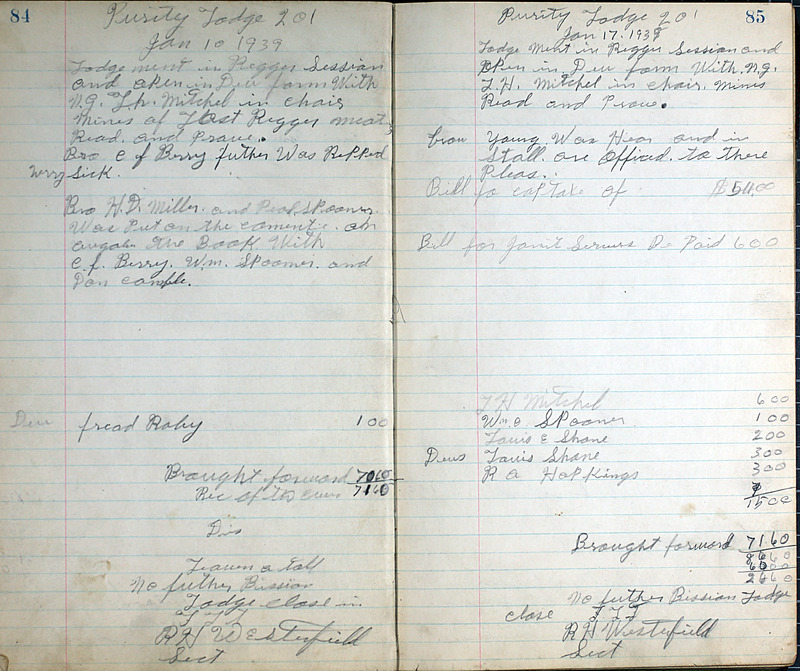 84
Purity Lodge 201
Jan 10 1939
Lodge ment in Regger Session
and open in Deu form With
N.G. Lh. Mitchel in chair
Mines of Last Regger meat
Read. and Prove.
Bro C f Berry futher Was Repped
Very Sick.
Bro H.D. Miller. and Peol Spooner
Was Put on the coment
the Book With
C.f. Berry. W.m. Spooner. and
Don
Deu fread Roby 1 00
Brought forward 70 60
Rec of 71 60
Leaven a tall
No futher Bission
Lodge close in
F L T
R H Westerfield
Sect
85
Purity Lodge 201
Jan 17. 1939
Lodge Ment in Regger Session and
open in Deu form With. N.G.
L.H. Mitchel in chair. Mines
Read and Prove.
Young Was Hear and in
Stall. are Officed. to there
Pleas.
Bill fo cap Take of $ 54.00
Bill for Janit De Paid 6 00
L H Mitchel 6 00
Wm. Spooner 1 00
Louis E Shane 2 00
Deus Louis Shane 3 00
R a Hopkings 3 00
15 00
Brought forward 71 60
86 60
60 00
26 60
No futher Bission Lodge
close F L T
R H Westerfield
Sect